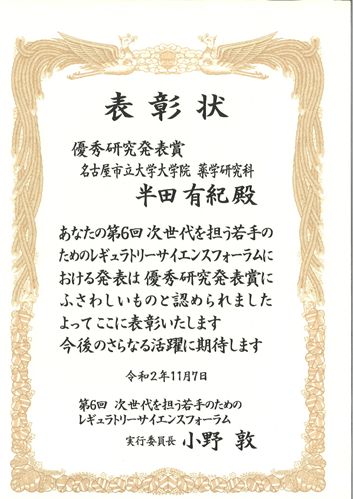 表彰状
優秀研究発表賞
名古屋市立大学大学院 薬学研究科
半田 有紀 殿
あなたの第6回 次世代を担う若手の
ためのレギュラトリーサイエンスフォーラムに
おける発表は優秀研究発表賞に
ふさわしいものと認められました
よってここに表彰いたします
今後のさらなる活躍に期待します
令和2年11月7日
第6回 次世代を担う若手のための
レギュラトリーサイエンスフォーラム
実行委員長 小野 敦